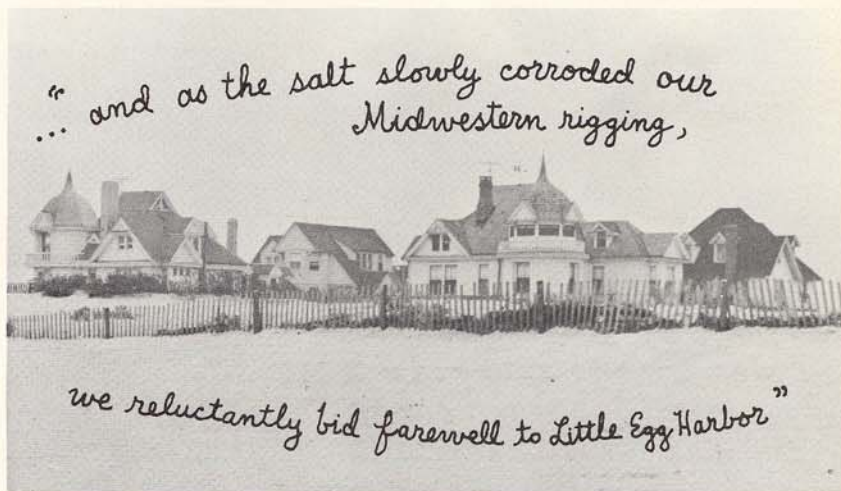 “... and as the salt slowly corroded our
Midwestern rigging,
we reluctantly bid farewell to Little Egg Harbor”